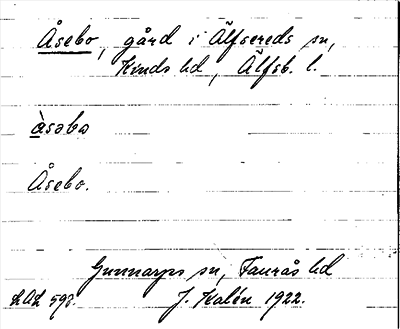 Åsebo, gård i Älfsereds sn,
Kinds hd, Älfsb. l.
àsəbo
Åsebo.
Gunnarps sn, Faurås hd
LAL 593. J. Kalén 1922.